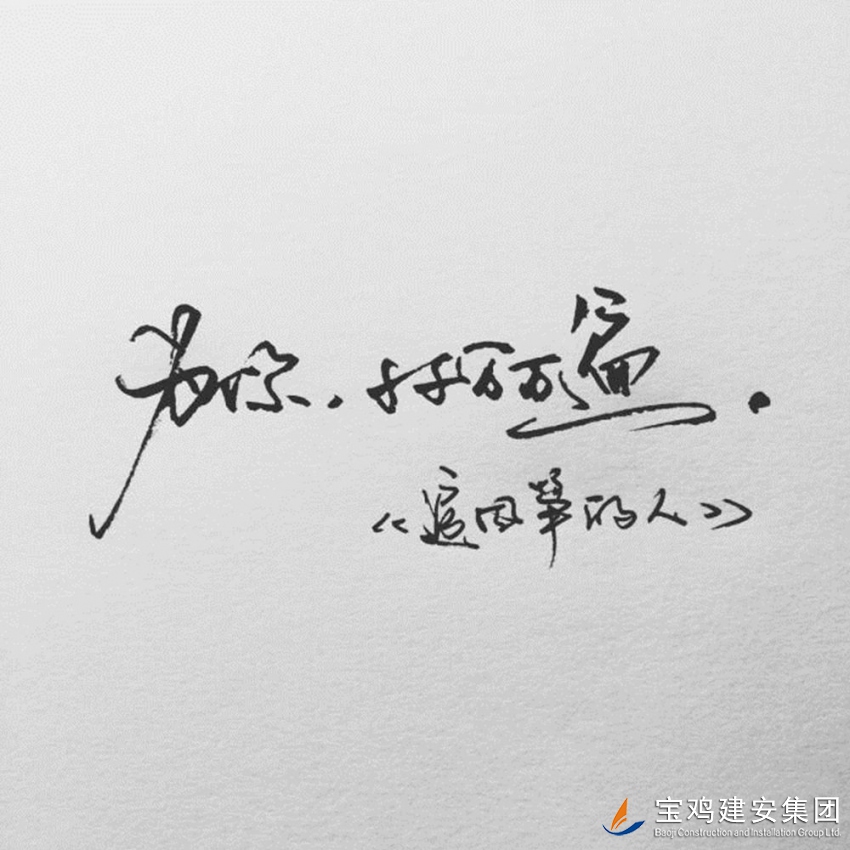 为你，千千万万遍.
《追风筝的人》
宝鸡建安集团
Baoji Construction and Installation Group Ltd.